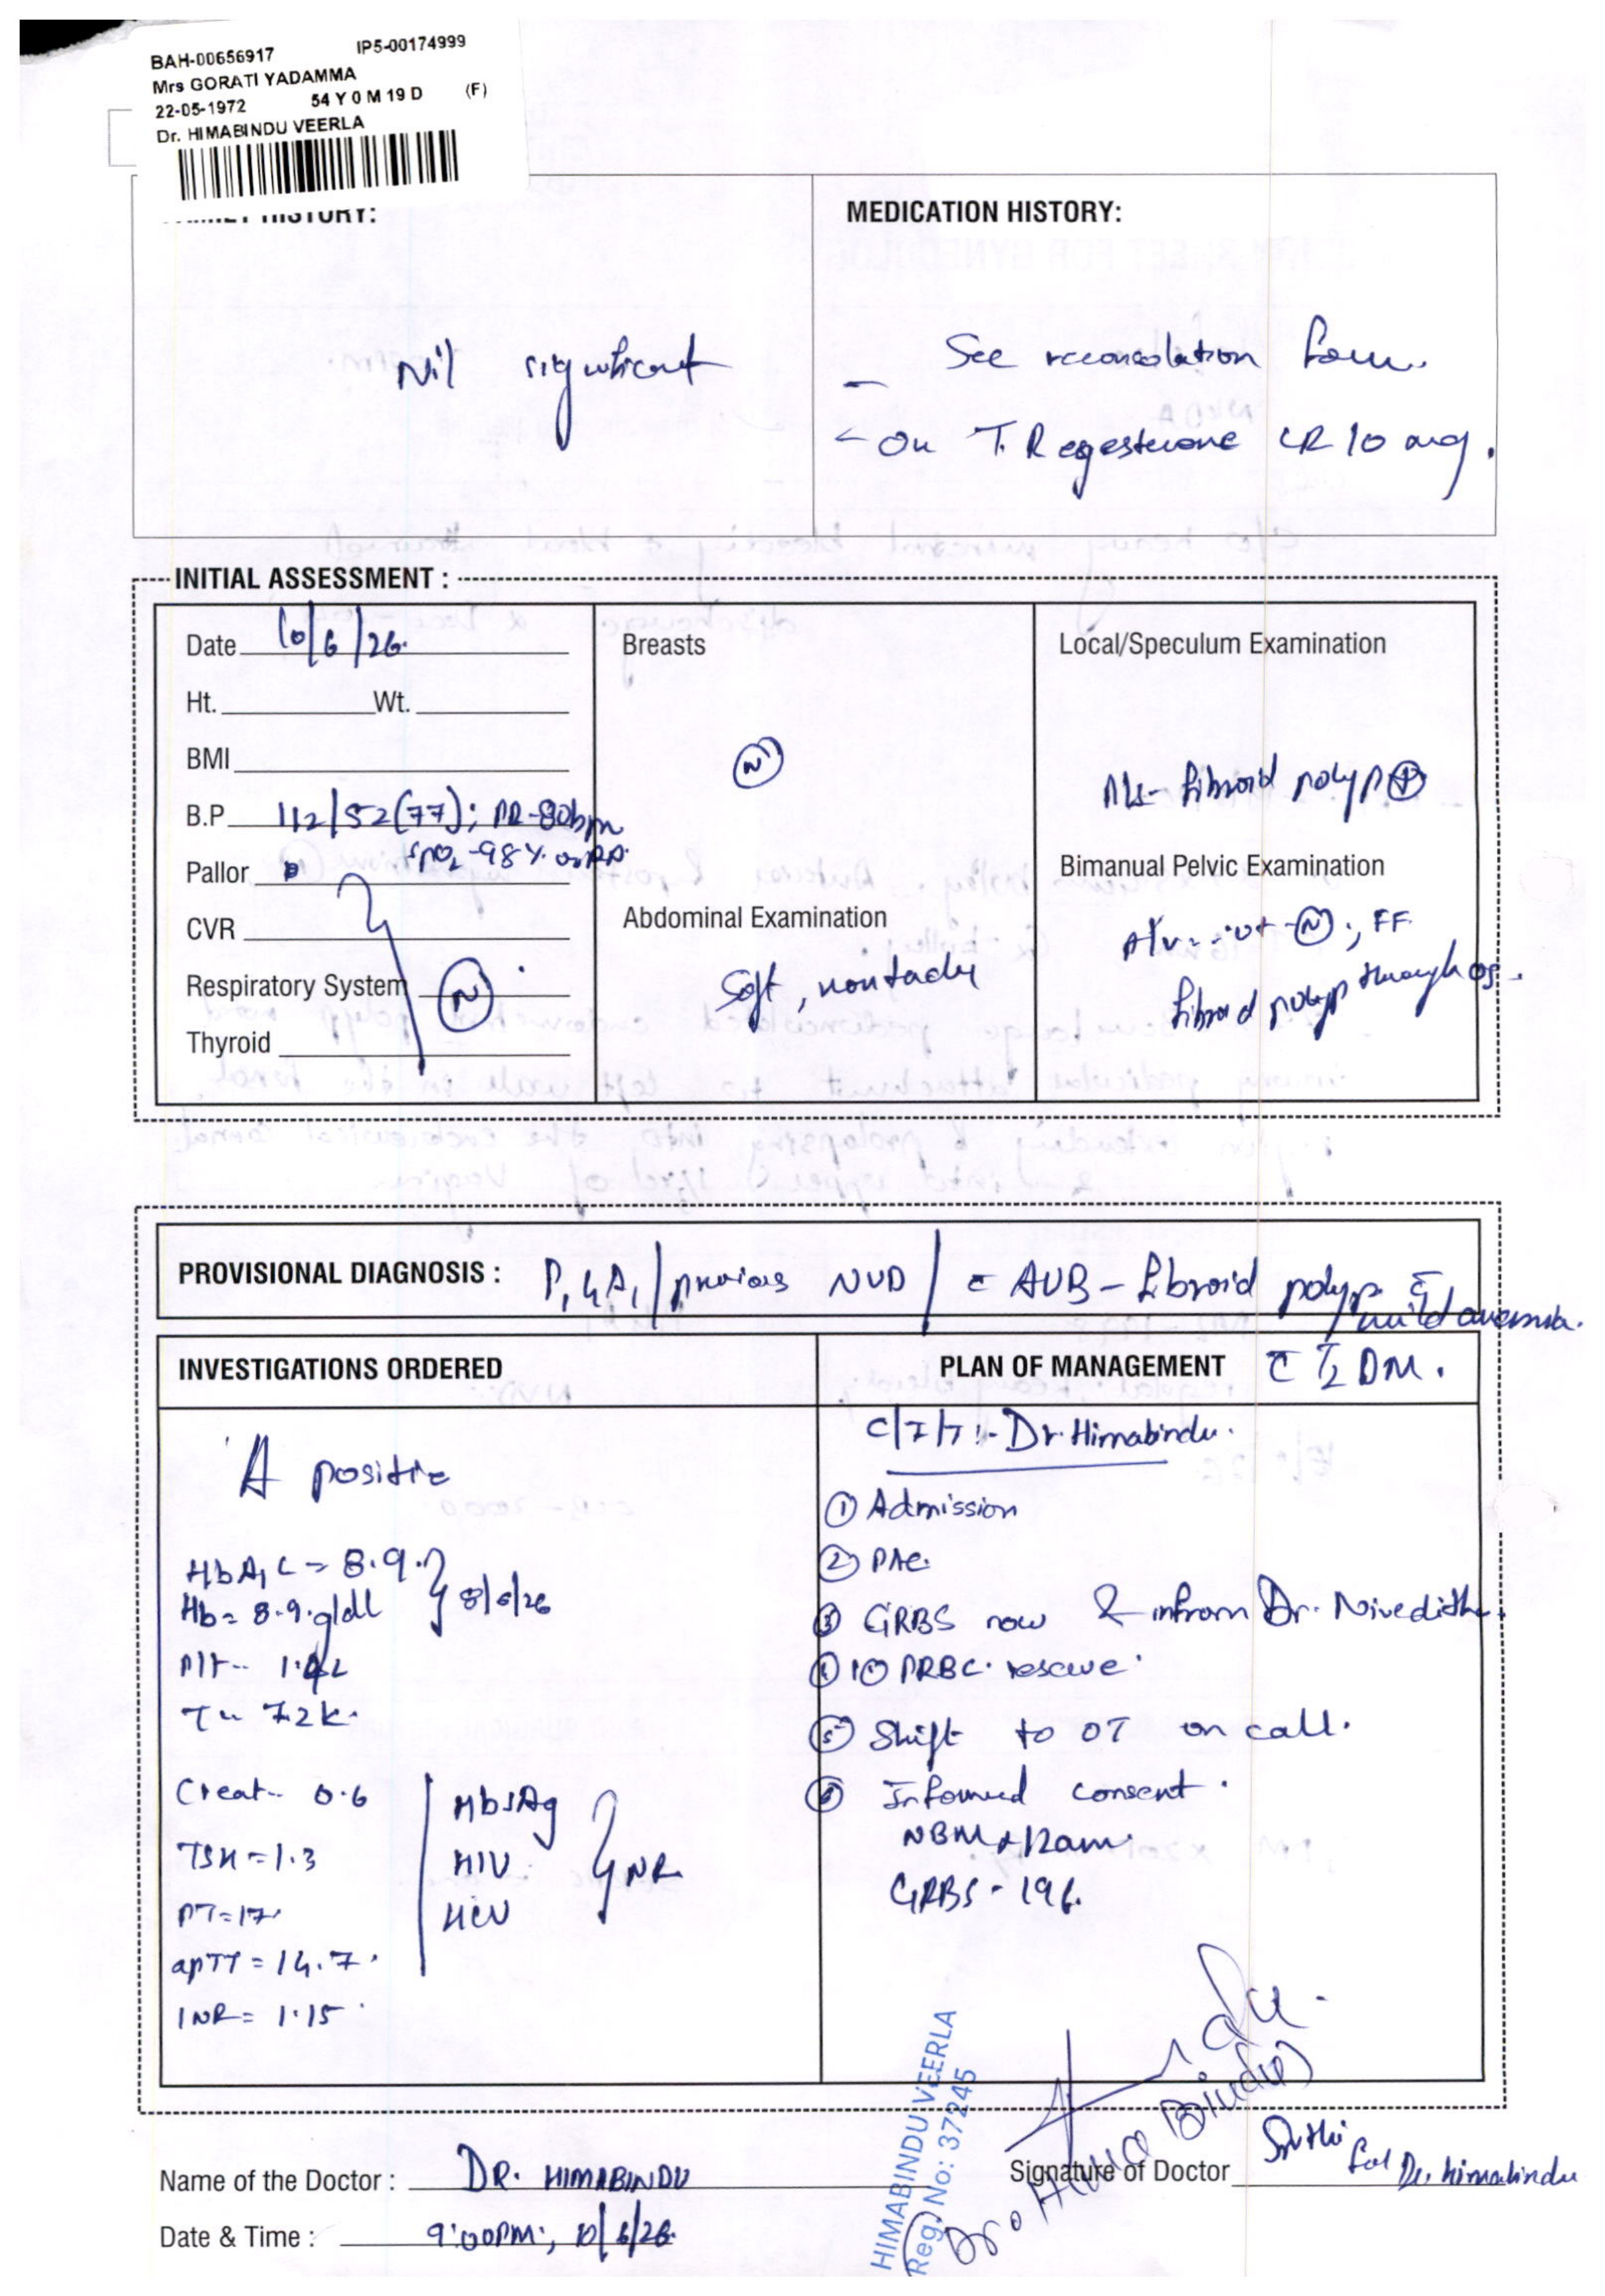 BAH-00656917 IP5-00174999
Mrs GORATI YADAMMA
22-05-1972 54 Y 0 M 19 D (F)
Dr. HIMABINDU VEERLA
HISTORY:
Nil significant
MEDICATION HISTORY:
- See reconcolation form.
- On T. Regesterone CR 10 mg.
INITIAL ASSESSMENT :
Date 10/6/26.
Ht. Wt.
BMI
B.P 112/52(77); PR-80bpm
SpO2-98% on RA.
Pallor
CVR
Respiratory System N
Thyroid
Breasts
N
Abdominal Examination
Soft, nontader
Local/Speculum Examination
P/s- fibroid polyp +
Bimanual Pelvic Examination
P/v- ut-N, FF.
fibroid polyp through os.
PROVISIONAL DIAGNOSIS : P1L1A1/previous NVD/ c AUB- fibroid polyp c
mild anemia.
c T2 DM.
INVESTIGATIONS ORDERED
A positive
HbA1C - 8.9.
Hb = 8.9.g/dl } 8/6/26
Plt-
T- 7.2k.
Creat- 0.6
TSH = 1.3
PT = 17.
apTT = 14.7.
INR = 1.15
HbsAg
HIV } NR
HCV
PLAN OF MANAGEMENT
Dr. Himabindu.
① Admission
② PAC.
③ GRBS now & infrom Dr. Niveditha.
④ 10 PRBC. reserve.
⑤ Shift to OT on call.
⑥ Informed consent.
NBM 12am.
GRBS - 196.
HIMABINDU VEERLA
Reg. No: 37245
Dr. Hima Bindu)
Name of the Doctor : DR. HIMABINDU
Signature of Doctor Sruthi for Dr. himabindu
Date & Time : 9:00PM; 10/6/26.